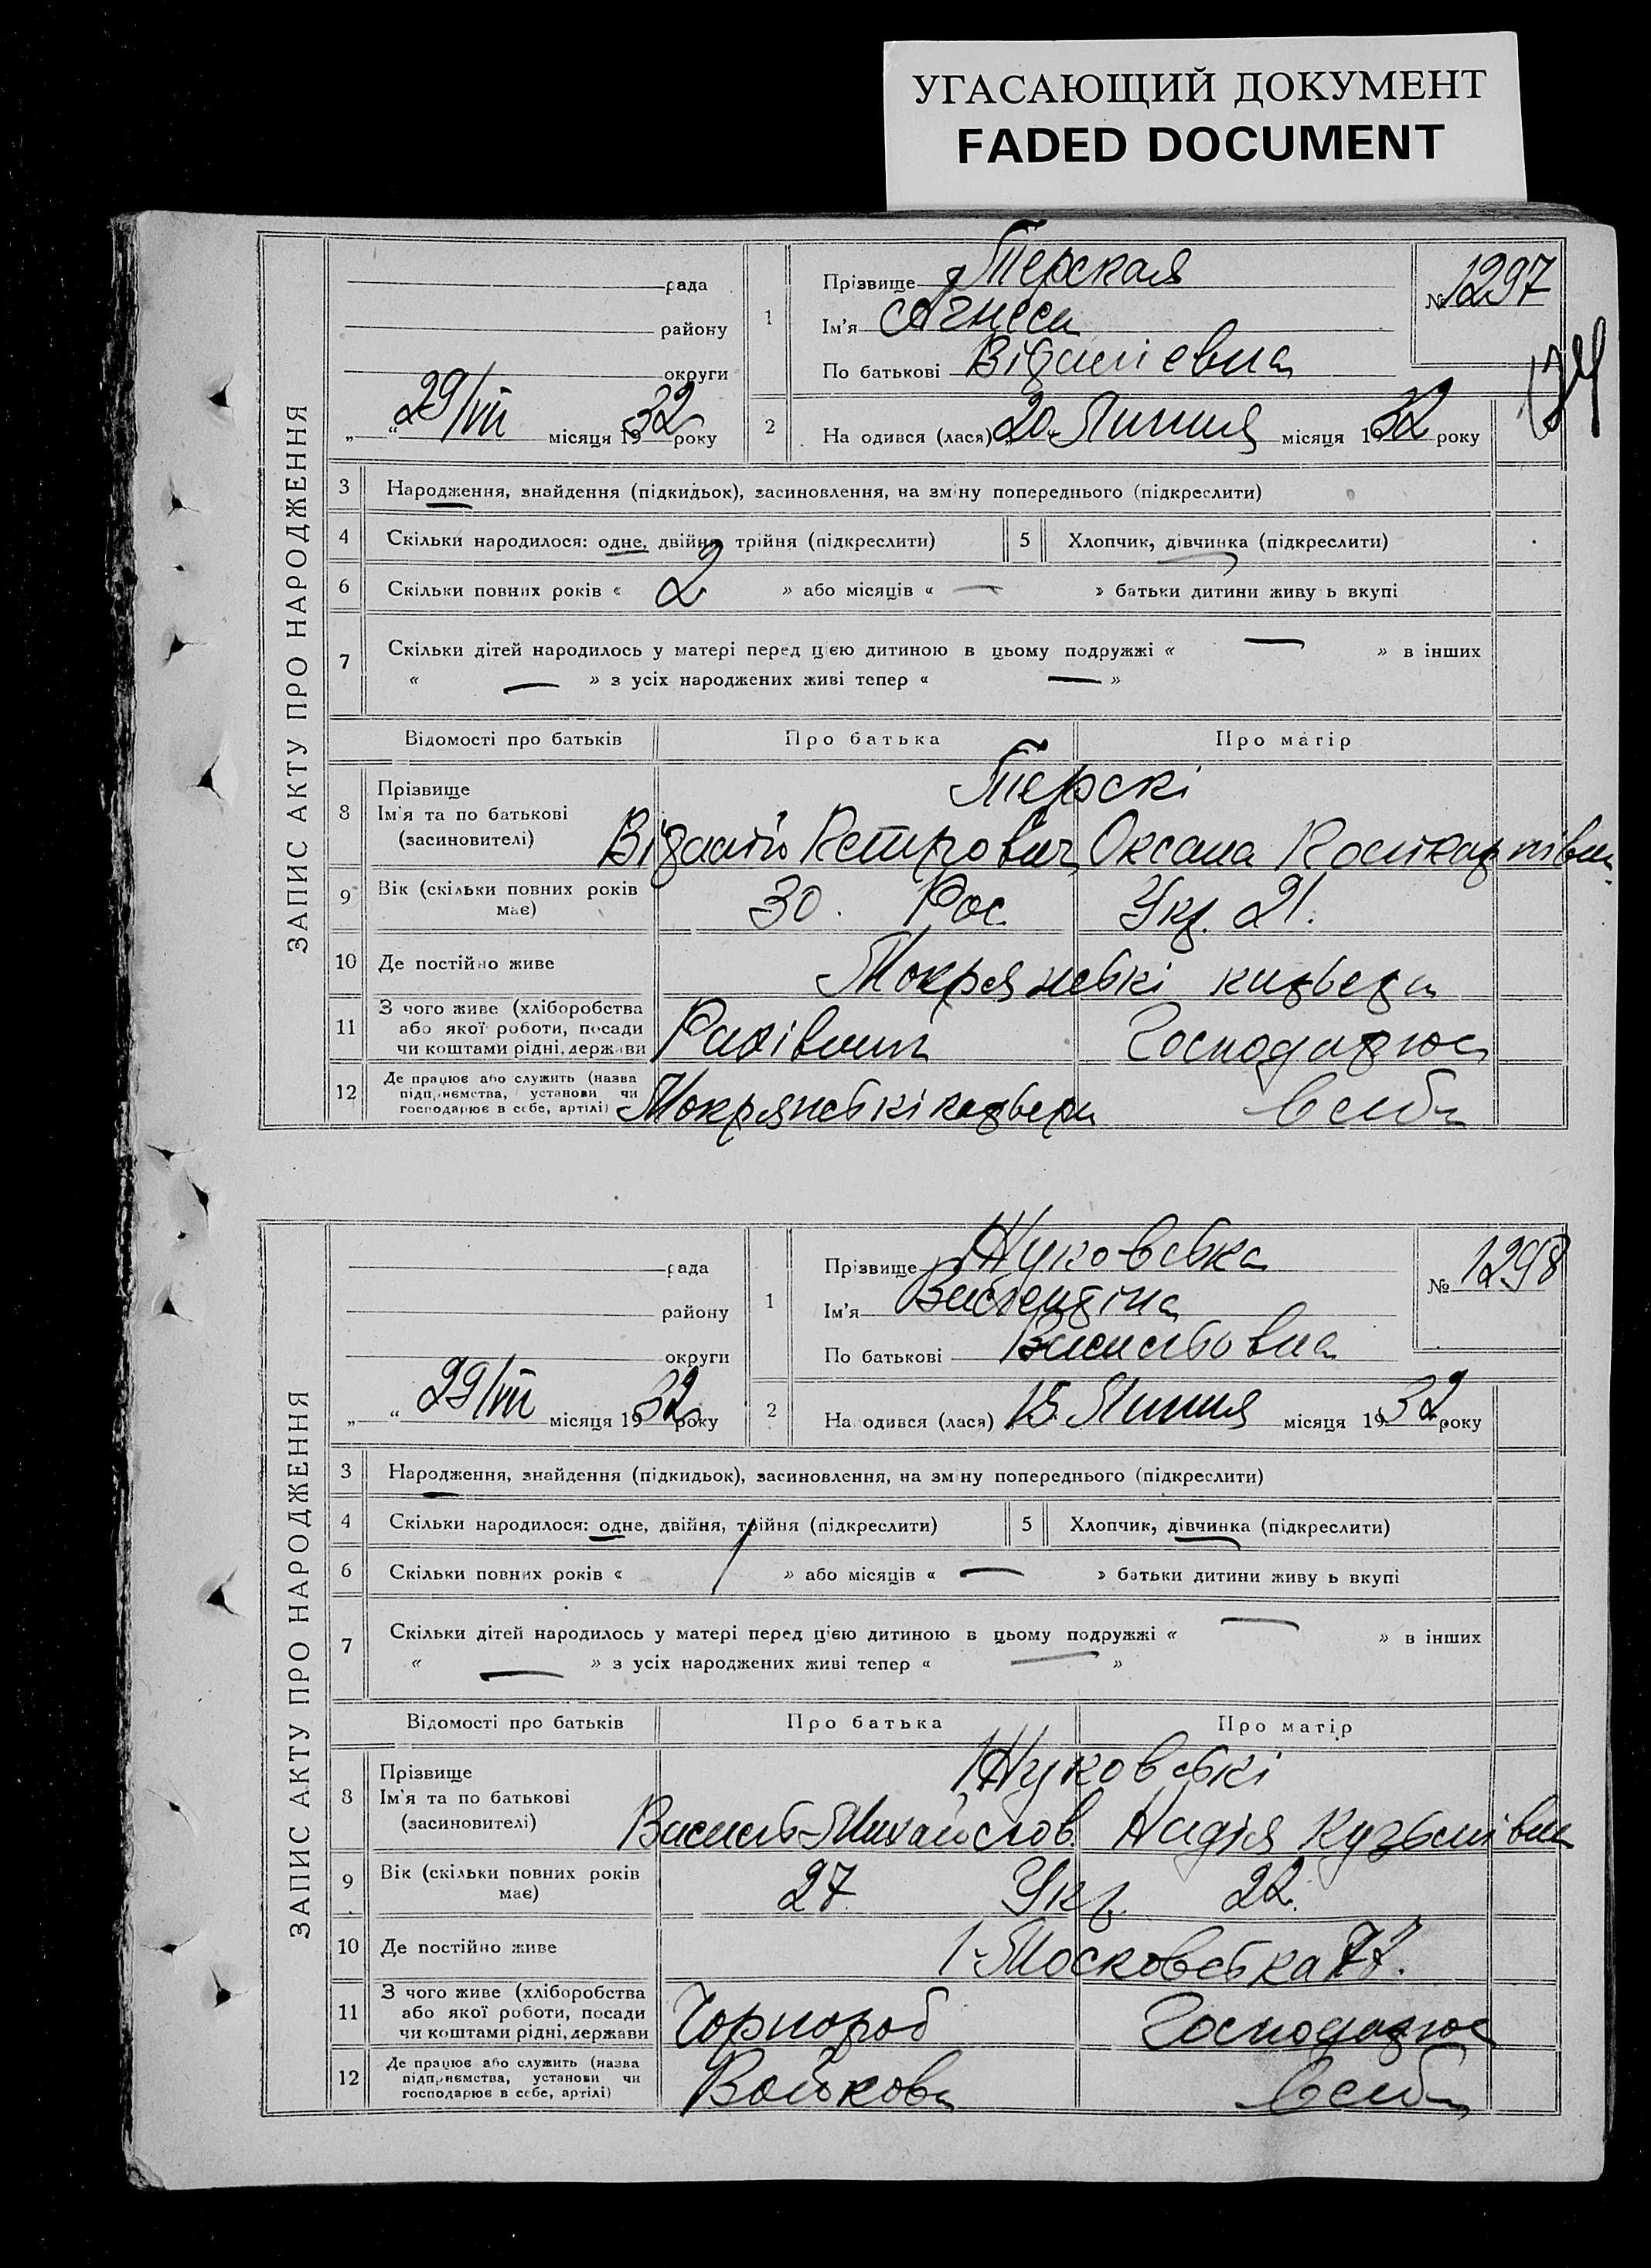 УГАСАЮЩИЙ ДОКУМЕНТ
FADED DOCUMENT
ЗАПИС АКТУ ПРО НАРОДЖЕННЯ
рада
району
округи
„ “ 29/VIII місяця 1932 року
1
Прізвище Терская
Ім'я Агнеса
По батькові Віталієвна
№ 1297
2
На одився (лася) „20“ Липня місяця 1932 року
3 Народження, знайдення (підкидьок), засиновлення, на зміну попереднього (підкреслити)
4 Скільки народилося: одне, двійня, трійня (підкреслити) 5 Хлопчик, дівчинка (підкреслити)
6 Скільки повних років « 2 » або місяців « — » батьки дитини живу ь вкупі
7 Скільки дітей народилось у матері перед цією дитиною в цьому подружжі « — » в інших
« — » з усіх народжених живі тепер « — »
Відомості про батьків Про батька Про матір
8 Прізвище Терскі
Ім'я та по батькові
(засиновителі) Віталій Петрович Оксана Полікарпівна
9 Вік (скільки повних років
має) 30. Рос. Укр. 21.
10 Де постійно живе Мокрянські кар'єра
11 З чого живе (хліборобства
або якої роботи, посади
чи коштами рідні, держави Рахівник Господарює
12 Де працює або служить (назва
підприємства, установи чи
господарює в себе, артілі) Мокрянські кар'єра в себе
ЗАПИС АКТУ ПРО НАРОДЖЕННЯ
рада
району
округи
„ “ 29/VIII місяця 1932 року
1
Прізвище Жуковська
Ім'я Валентіна
По батькові Васильовна
№ 1298
2
На одився (лася) „15. Липня місяця 1932 року
3 Народження, знайдення (підкидьок), засиновлення, на зміну попереднього (підкреслити)
4 Скільки народилося: одне, двійня, трійня (підкреслити) 5 Хлопчик, дівчинка (підкреслити)
6 Скільки повних років « 1 » або місяців « — » батьки дитини живу ь вкупі
7 Скільки дітей народилось у матері перед цією дитиною в цьому подружжі « — » в інших
« — » з усіх народжених живі тепер « — »
Відомості про батьків Про батька Про матір
8 Прізвище Жуковські
Ім'я та по батькові
(засиновителі) Василь Михайлов. Надія Кузьмівна
9 Вік (скільки повних років
має) 27 Укр. 22.
10 Де постійно живе 1-Московська 77.
11 З чого живе (хліборобства
або якої роботи, посади
чи коштами рідні, держави Чорнороб Господарює
12 Де працює або служить (назва
підприємства, установи чи
господарює в себе, артілі) Войкова в себе